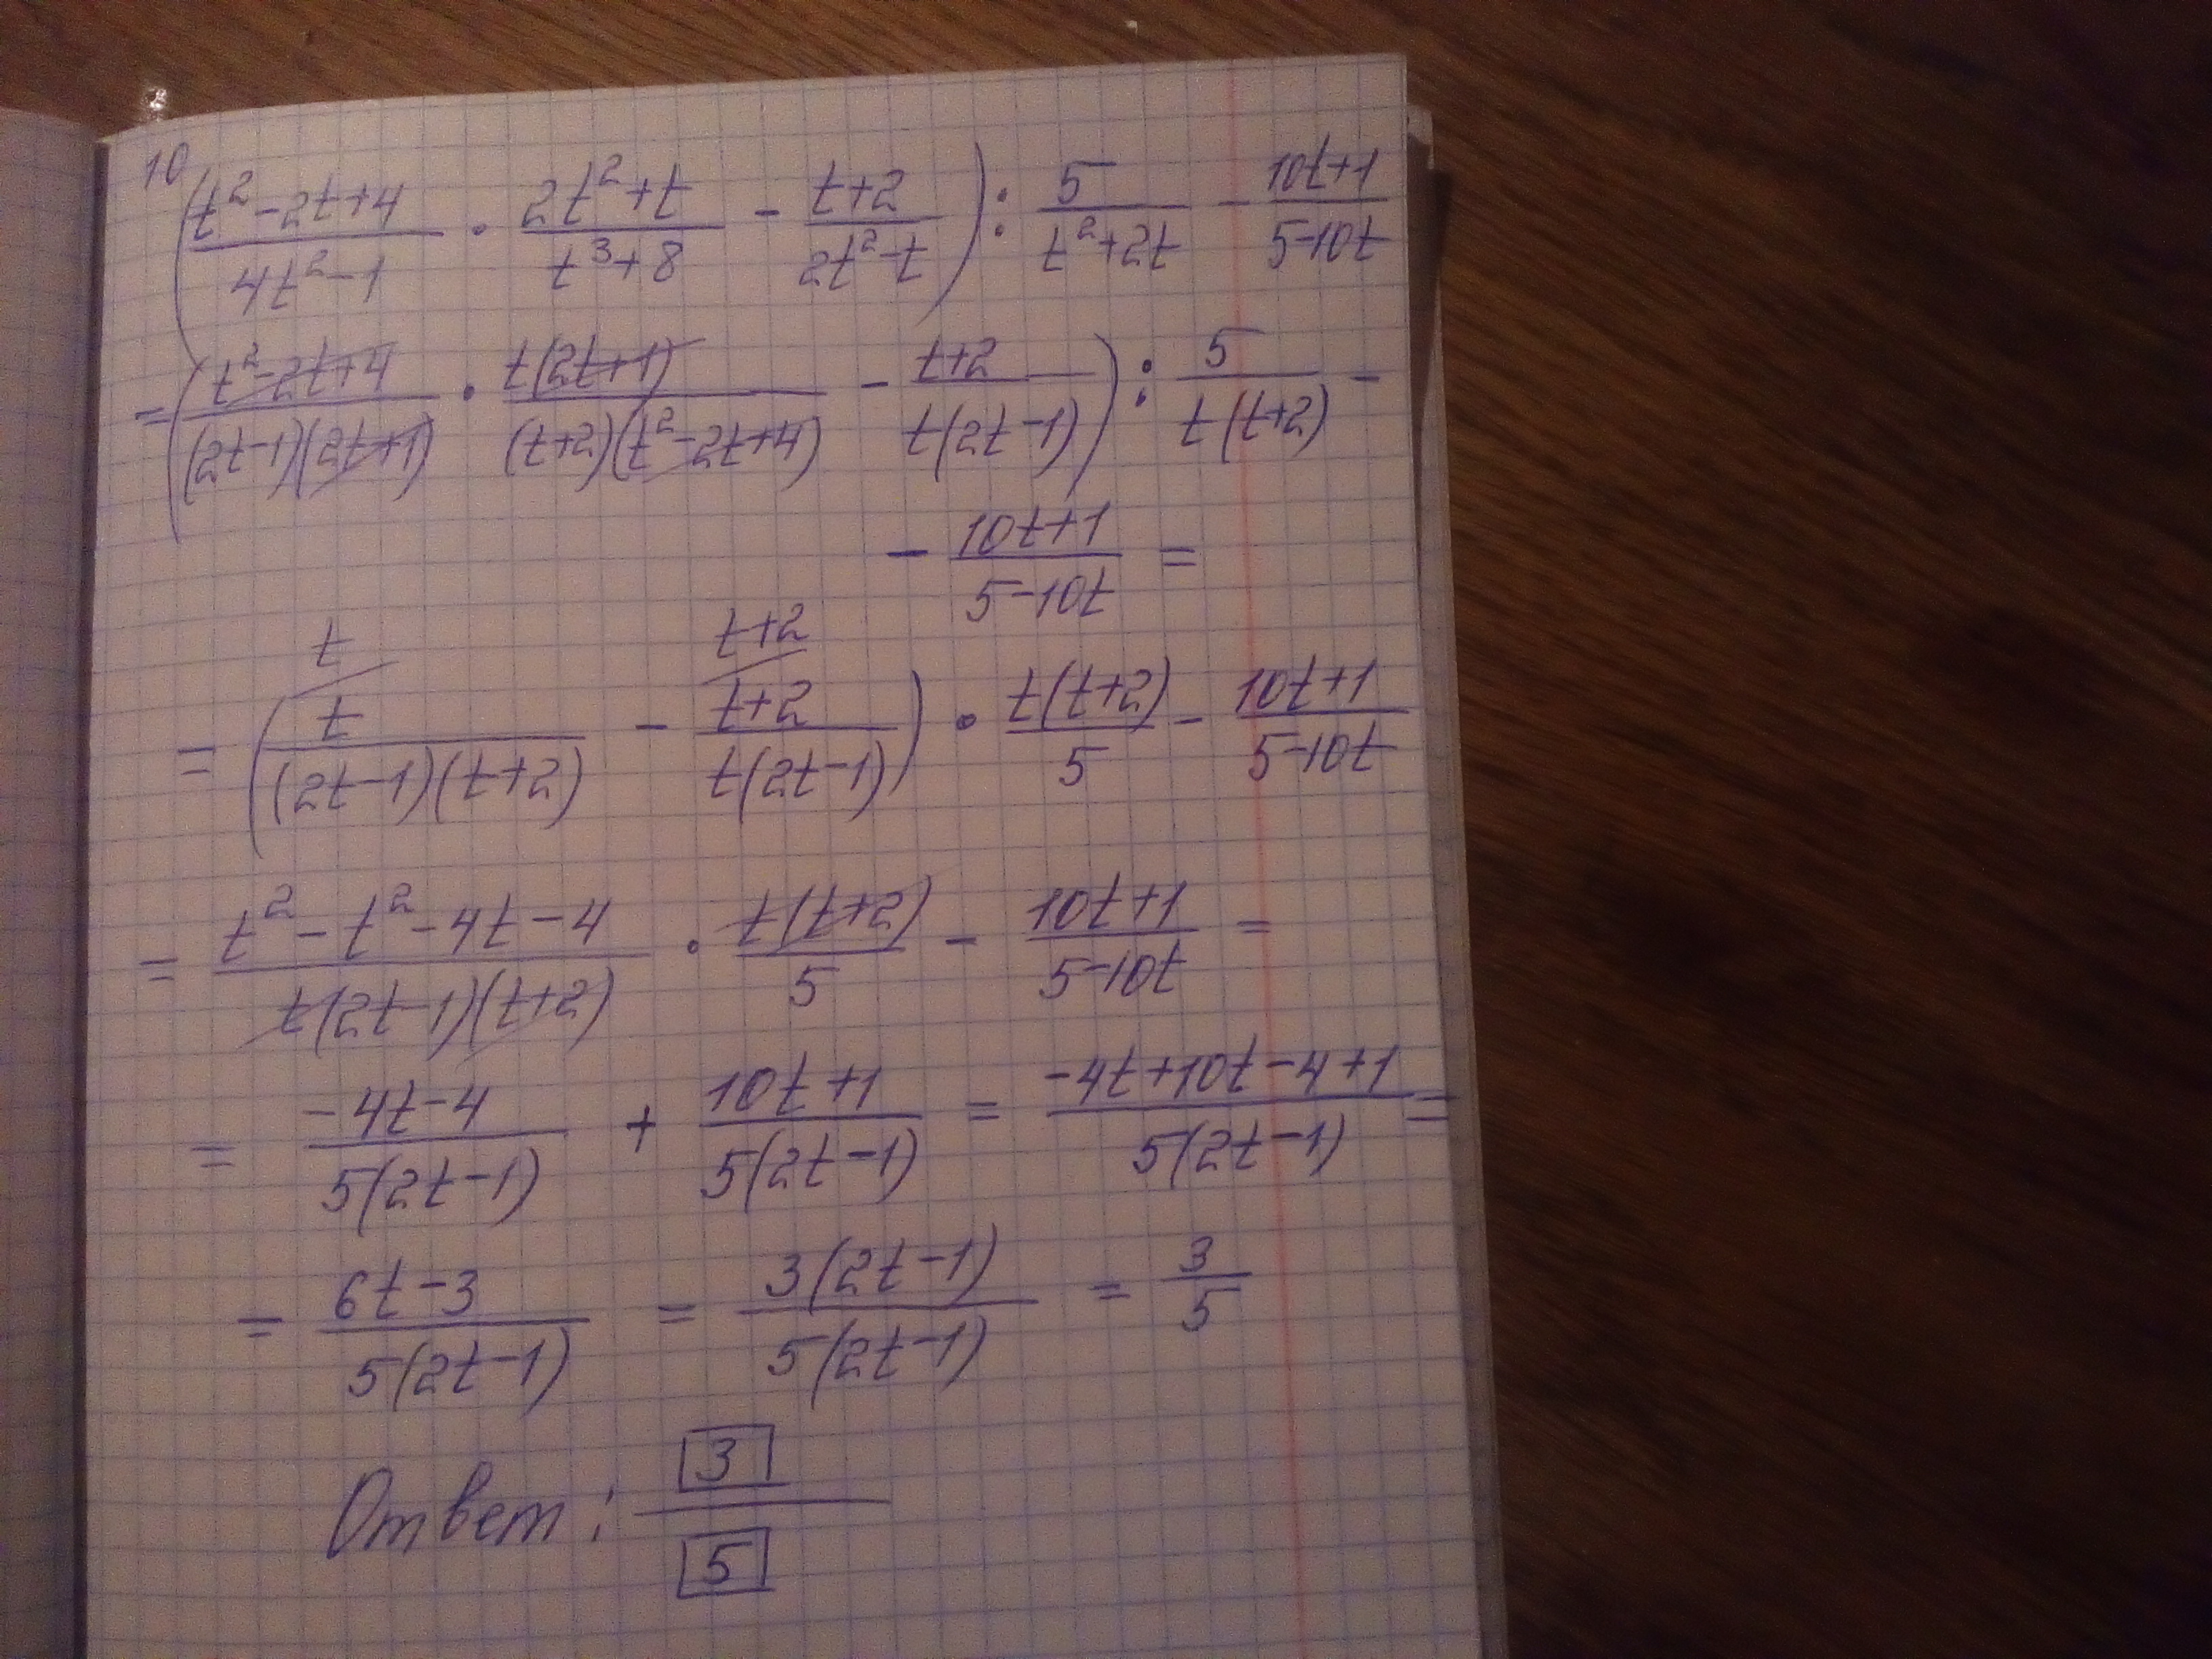 10
(t²-2t+4)/(4t²-1) · (2t²+t)/(t³+8) - (t+2)/(2t²-t)) : 5/(t²+2t) - (10t+1)/(5-10t)
= ((t²-2t+4)/((2t-1)(2t+1)) · t(2t+1)/((t+2)(t²-2t+4)) - (t+2)/(t(2t-1))) : 5/(t(t+2)) -
- (10t+1)/(5-10t) =
t t+2
= (t/((2t-1)(t+2)) - (t+2)/(t(2t-1))) · t(t+2)/5 - (10t+1)/(5-10t)
= (t²-t²-4t-4)/(t(2t-1)(t+2)) · t(t+2)/5 - (10t+1)/(5-10t) =
= (-4t-4)/(5(2t-1)) + (10t+1)/(5(2t-1)) = (-4t+10t-4+1)/(5(2t-1)) =
= (6t-3)/(5(2t-1)) = 3(2t-1)/(5(2t-1)) = 3/5
Ответ: 3/5